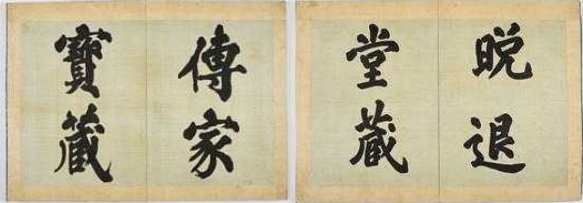 晩退
堂藏
傳家
寶藏